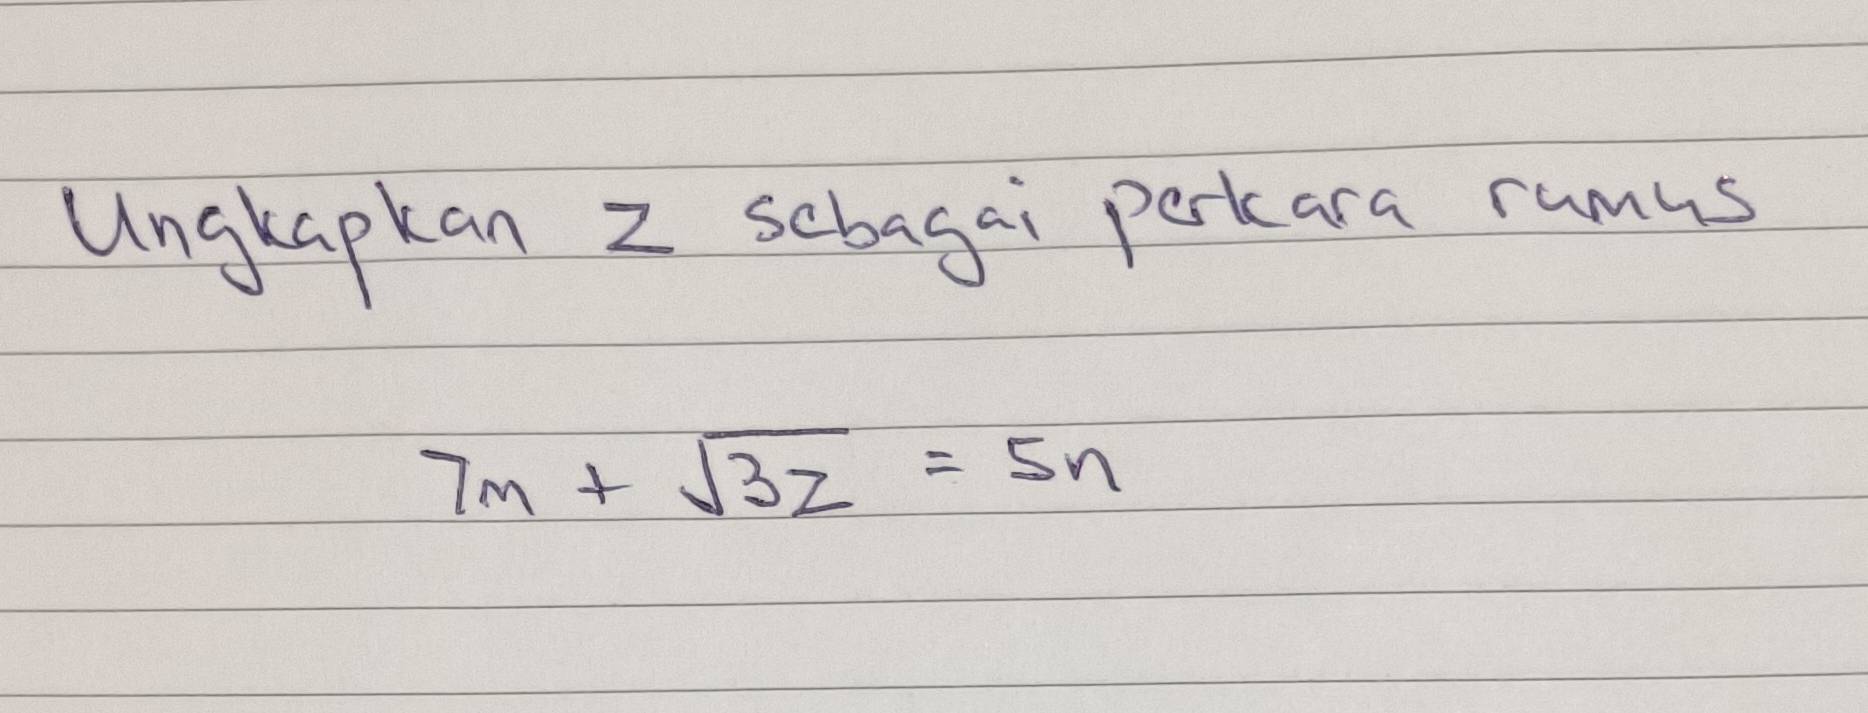 Ungkapkan z sebagai perkara rumus
7m + √3z = 5n